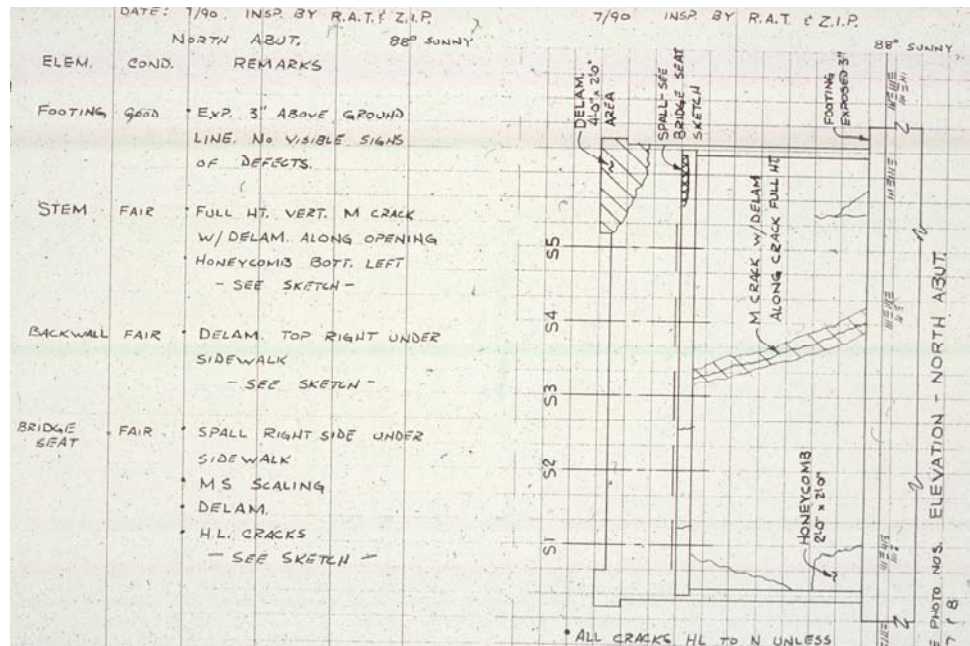 DATE: 7/90 INSP. BY R.A.T. & Z.I.P.
NORTH ABUT. 88° SUNNY
ELEM. COND. REMARKS
FOOTING GOOD • EXP. 3" ABOVE GROUND
LINE. NO VISIBLE SIGNS
OF DEFECTS.
STEM FAIR • FULL HT. VERT. M CRACK
W/ DELAM. ALONG OPENING
• HONEYCOMB BOTT. LEFT
- SEE SKETCH -
BACKWALL FAIR • DELAM. TOP RIGHT UNDER
SIDEWALK
- SEE SKETCH -
BRIDGE SEAT FAIR • SPALL RIGHT SIDE UNDER
SIDEWALK
• MS SCALING
• DELAM.
• H.L. CRACKS
- SEE SKETCH -
7/90 INSP. BY R.A.T. & Z.I.P.
88° SUNNY
DELAM.
4'-0" x 2'-0"
AREA
SPALL-SEE
BRIDGE SEAT
SKETCH
FOOTING
EXPOSED 3"
M CRACK W/DELAM
ALONG CRACK FULL HT
S5
S4
S3
S2
S1
HONEYCOMB
2'-0" x 2'-0"
ELEVATION - NORTH ABUT.
PHOTO NOS.
7 & 8
• ALL CRACKS HL TO N UNLESS